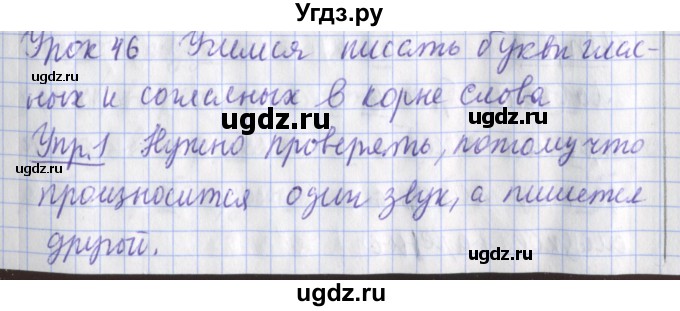 Угдз.ру
Урок 46 Учимся писать буквы глас-
ugdz.ru ugdz.ru
ных и согласных в корне слова
ugdz.ru
Упр.1 Нужно проверять, потому что
произносится один звук, а пишется
ugdz.ru ugdz.ru
другой.
ugdz.ru